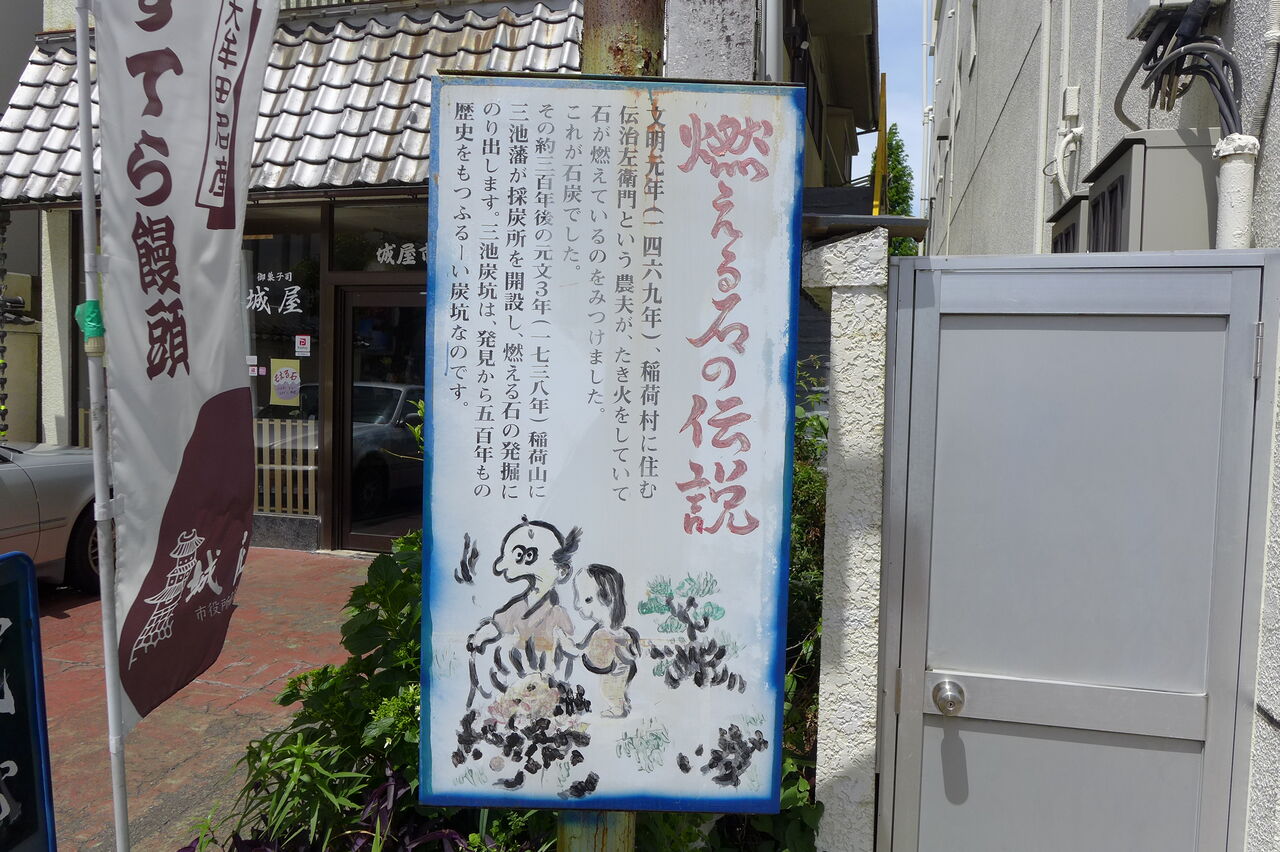 燃える石の伝説
文明元年(一四六九年)、稲荷村に住む
伝治左衛門という農夫が、たき火をしていて
石が燃えているのをみつけました。
これが石炭でした。
その約三百年後の元文3年(一七三八年)稲荷山に
三池藩が採炭所を開設し、燃える石の発掘に
のり出します。三池炭坑は、発見から五百年もの
歴史をもつふるーい炭坑なのです。
大牟田名産
すてら饅頭
城
市役所
御菓子司
城屋
城屋
もえる石